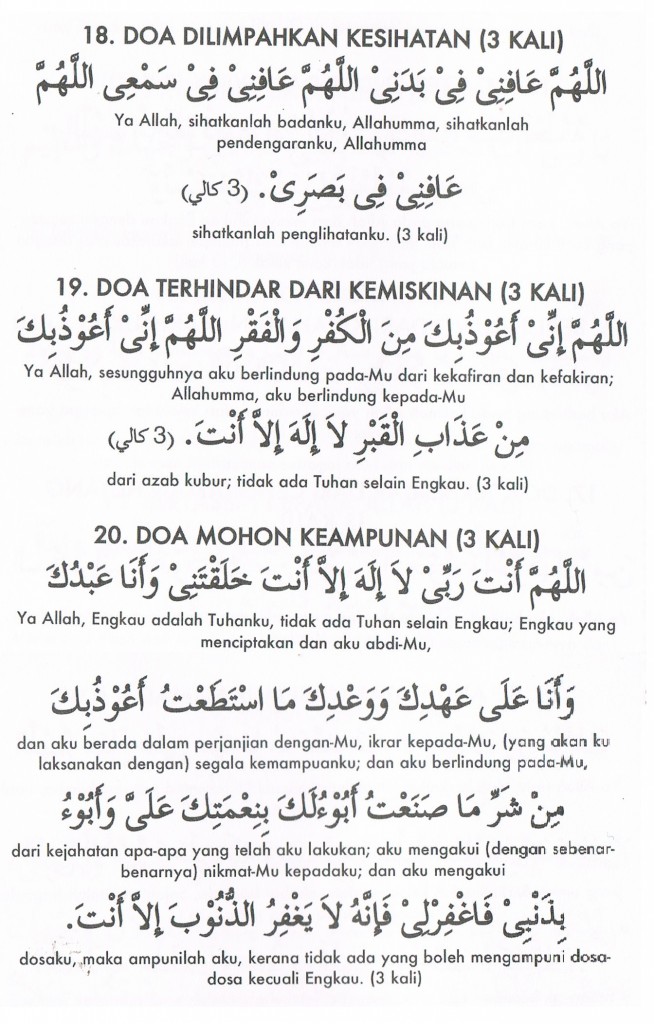 18. DOA DILIMPAHKAN KESIHATAN (3 KALI)
اللَّهُمَّ عَافِنِىْ فِىْ بَدَنِىْ اللَّهُمَّ عَافِنِىْ فِىْ سَمْعِى اللَّهُمَّ
Ya Allah, sihatkanlah badanku, Allahumma, sihatkanlah
pendengaranku, Allahumma
عَافِنِىْ فِى بَصَرِىْ. (3 كالي)
sihatkanlah penglihatanku. (3 kali)
19. DOA TERHINDAR DARI KEMISKINAN (3 KALI)
اللَّهُمَّ إِنِّىْ أَعُوْذُبِكَ مِنَ الْكُفْرِ وَالْفَقْرِ اللَّهُمَّ إِنِّىْ أَعُوْذُبِكَ
Ya Allah, sesungguhnya aku berlindung pada-Mu dari kekafiran dan kefakiran;
Allahumma, aku berlindung kepada-Mu
مِنْ عَذَابِ الْقَبْرِ لاَ إِلَهَ إِلاَّ أَنْتَ. (3 كالي)
dari azab kubur; tidak ada Tuhan selain Engkau. (3 kali)
20. DOA MOHON KEAMPUNAN (3 KALI)
اللَّهُمَّ أَنْتَ رَبِّىْ لاَ إِلَهَ إِلاَّ أَنْتَ خَلَقْتَنِىْ وَأَنَا عَبْدُكَ
Ya Allah, Engkau adalah Tuhanku, tidak ada Tuhan selain Engkau; Engkau yang
menciptakan dan aku abdi-Mu,
وَأَنَا عَلَى عَهْدِكَ وَوَعْدِكَ مَا اسْتَطَعْتُ أَعُوْذُبِكَ
dan aku berada dalam perjanjian dengan-Mu, ikrar kepada-Mu, (yang akan ku
laksanakan dengan) segala kemampuanku; dan aku berlindung pada-Mu,
مِنْ شَرِّ مَا صَنَعْتُ أَبُوْءُلَكَ بِنِعْمَتِكَ عَلَىَّ وَأَبُوْءُ
dari kejahatan apa-apa yang telah aku lakukan; aku mengakui (dengan sebenar-
benarnya) nikmat-Mu kepadaku; dan aku mengakui
بِذَنْبِىْ فَاغْفِرْلِىْ فَإِنَّهُ لاَ يَغْفِرُ الذُّنُوْبَ إِلاَّ أَنْتَ.
dosaku, maka ampunilah aku, kerana tidak ada yang boleh mengampuni dosa-
dosa kecuali Engkau. (3 kali)